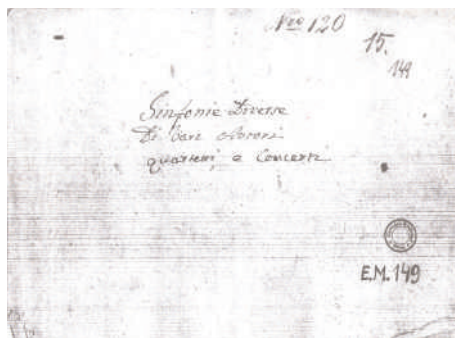 Nro 120
15.
149
Sinfonie Diverse
Di Vari Autori
quartetti e Concerti
E.M. 149